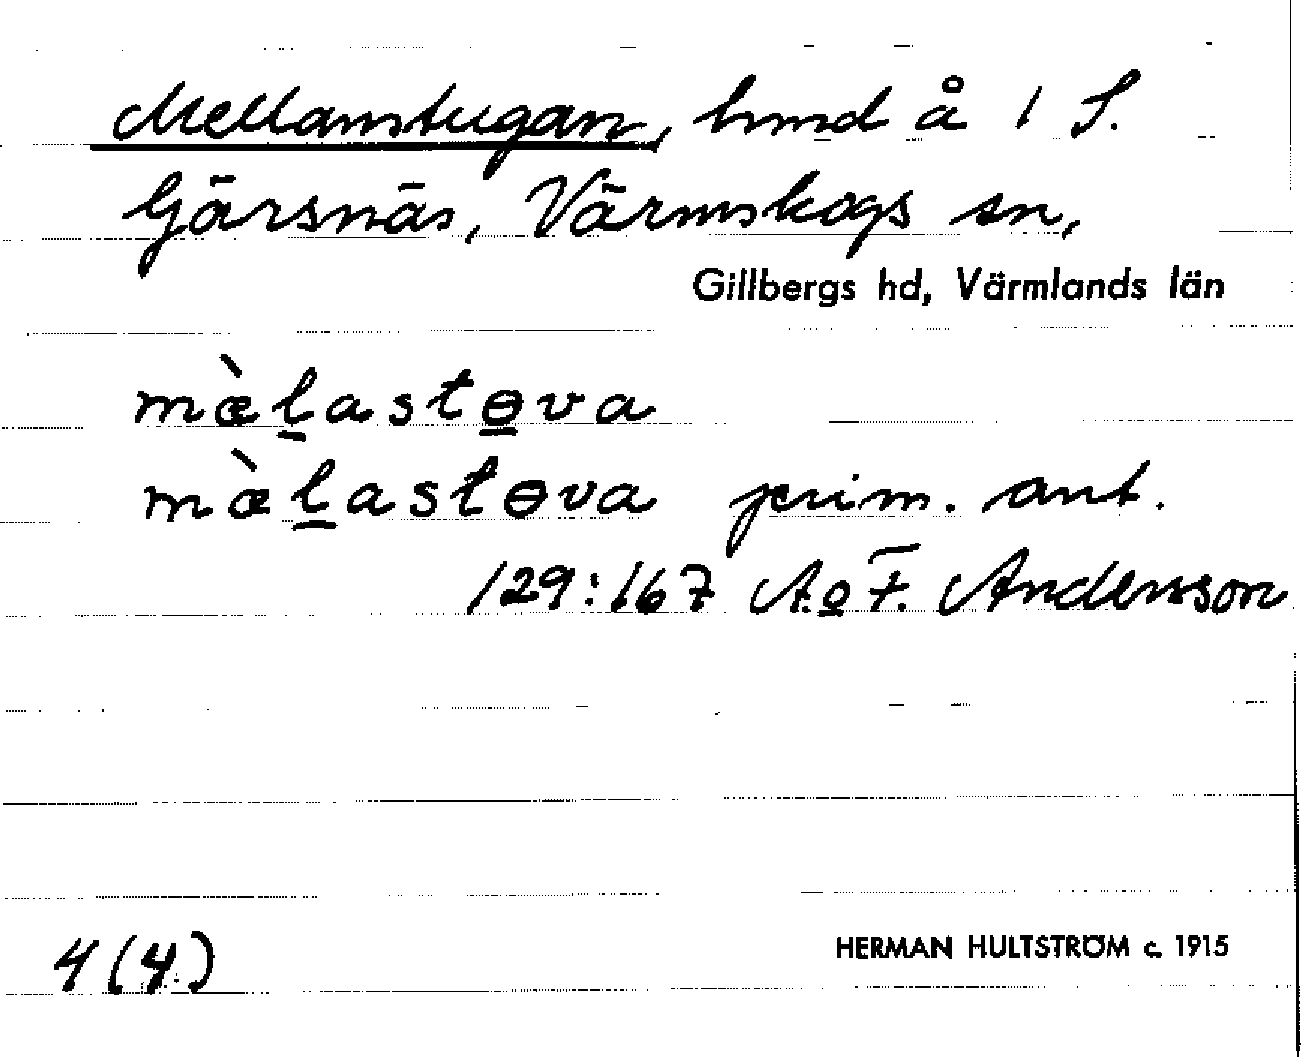 Mellanstugan, hmd å 1 S.
Gärsnäs, Värmskogs sn,
Gillbergs hd, Värmlands län
mæ̀l̲astɵ̲va
mæ̀l̲astɵva prim. ant.
129:167 A. o F. Andersson
4 (4.)
HERMAN HULTSTRÖM c. 1915